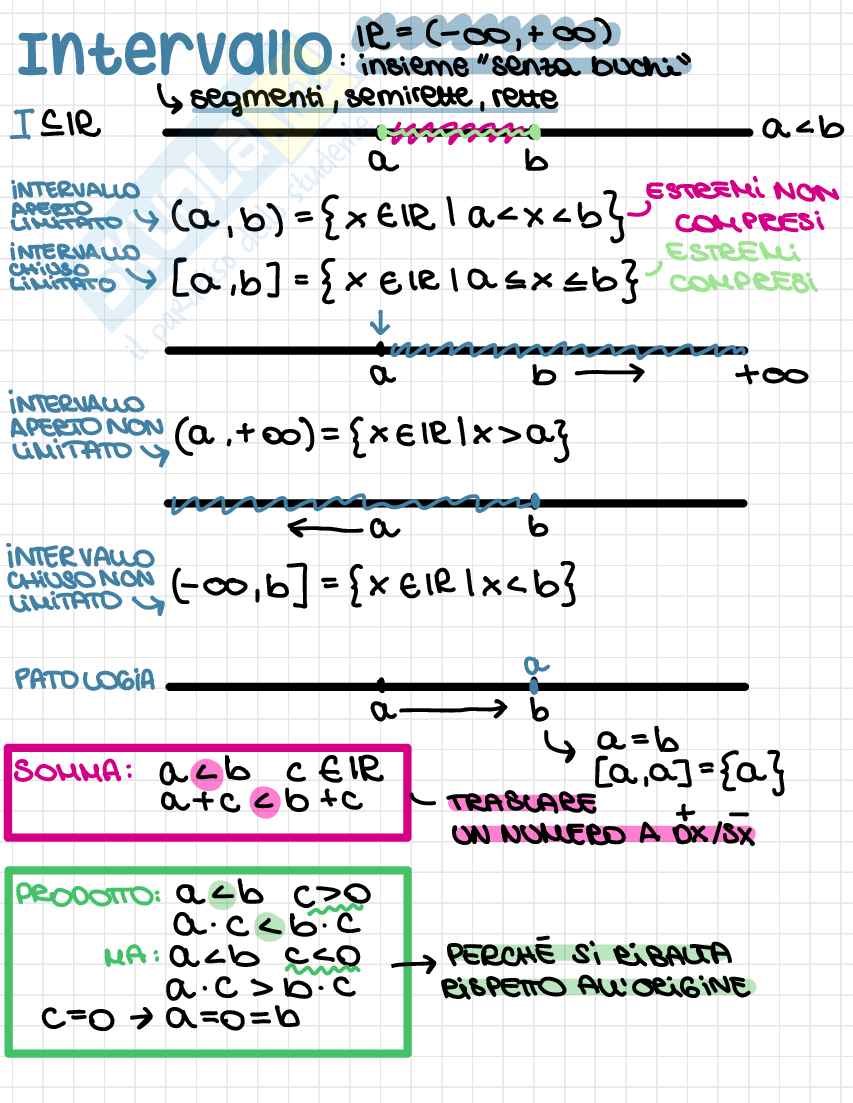 Intervallo: IR = (-∞, +∞)
insieme "senza buchi"
↳ segmenti, semirette, rette
I ⊆ IR
a < b
a b
INTERVALLO
APERTO
LIMITATO ↘ (a, b) = {x ∈ IR | a < x < b}
ESTREMI NON
COMPRESI
INTERVALLO
CHIUSO
LIMITATO ↘ [a, b] = {x ∈ IR | a ≤ x ≤ b}
ESTREMI
COMPRESI
↓
a b → +∞
INTERVALLO
APERTO NON
LIMITATO ↘ (a, +∞) = {x ∈ IR | x > a}
← a b
INTERVALLO
CHIUSO NON
LIMITATO ↘ (-∞, b] = {x ∈ IR | x < b}
PATOLOGIA
a
a → b
↳ a = b
[a, a] = {a}
SOMMA: a < b c ∈ IR
a + c < b + c
TRASLARE
UN NUMERO A DX/SX
+ −
PRODOTTO: a < b c > 0
a · c < b · c
MA: a < b c < 0
a · c > b · c
c = 0 → a = 0 = b
→ PERCHÉ SI RIBALTA
RISPETTO ALL'ORIGINE
il paradiso dello studente